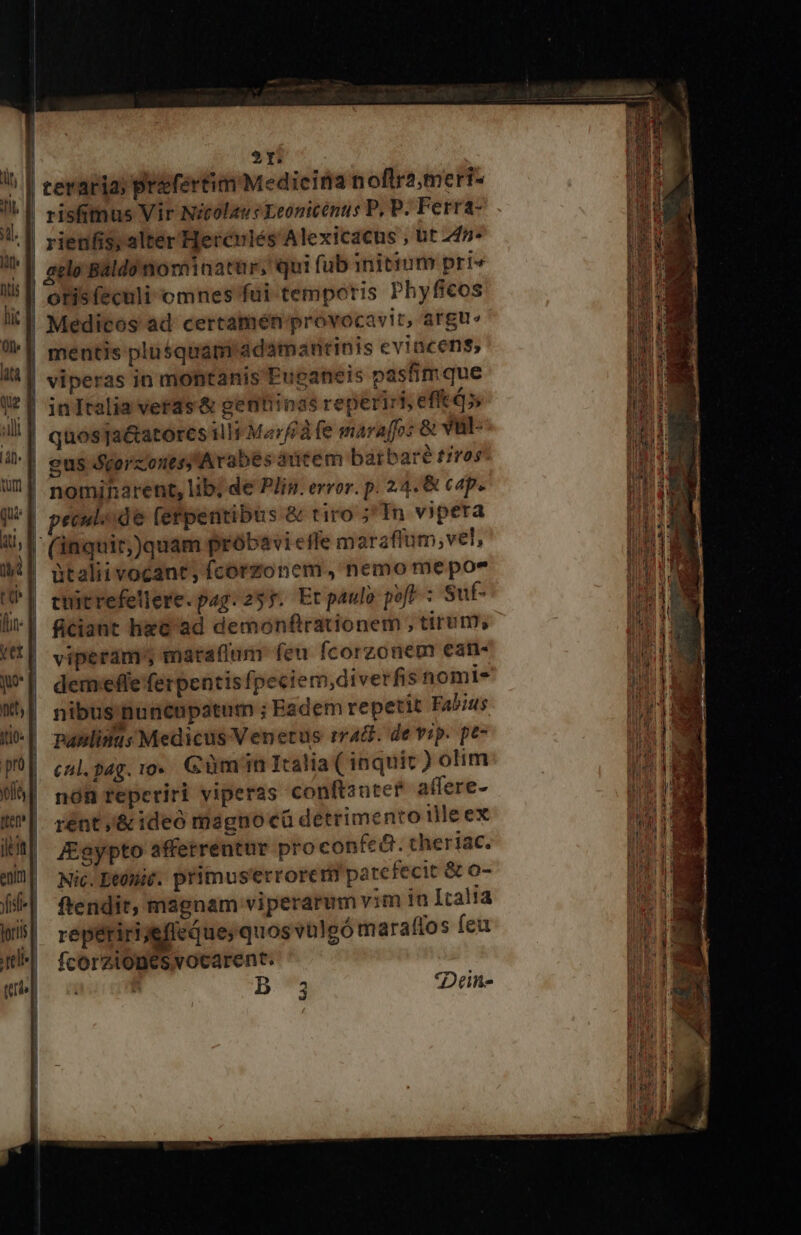 21.
teraria, præsertim Medicina nostra, meri-
risfimus Vir Nicolaus Leonicenus P. P. Ferra-
riensis, alter Hercules Alexicacus, ut An-
gelo Baldo nominatur, qui sub initium pri-
oris seculi omnes sui temporis Physicos
Medicos ad certamen provocavit, argu-
mentis plusquam adamantinis evincens,
viperas in montanis Euganeis pasfimque
in Italia veras & genuinas reperiri, esseq;
quos jactatores illi Marsi à se marassos & vul-
gus Scorzones, Arabes autem barbarè tiros
nominarent, lib. de Plin. error. p. 24. & cap.
de serpentibus & tiro; In vipera
(inquit,) quam probavi esse marassum, vel,
ùt alii vocant, scorzonem, nemo me po-
tuit refellere. pag. 255. Et paulo post: Suf-
ficiant hæc ad demonstrationem, tirum,
viperam, marassum seu scorzonem ean-
dem esse serpentis speciem, diversis nomi-
nibus nuncupatum; Eadem repetit Fabius
Paulinus Medicus Venetus tract. de vip. pe-
cul. pag. 10. Cùm in Italia (inquit) olim
non reperiri viperas constanter assere-
rent, & ideò magno cū detrimento ille ex
Ægypto afferrentur pro confect. theriac.
Nic. Leonic. primus errorem patefecit & o-
stendit, magnam viperarum vim in Italia
reperiri, esseque, quos vulgó marassos seu
scorziones vocarent.
B 3 Dein-